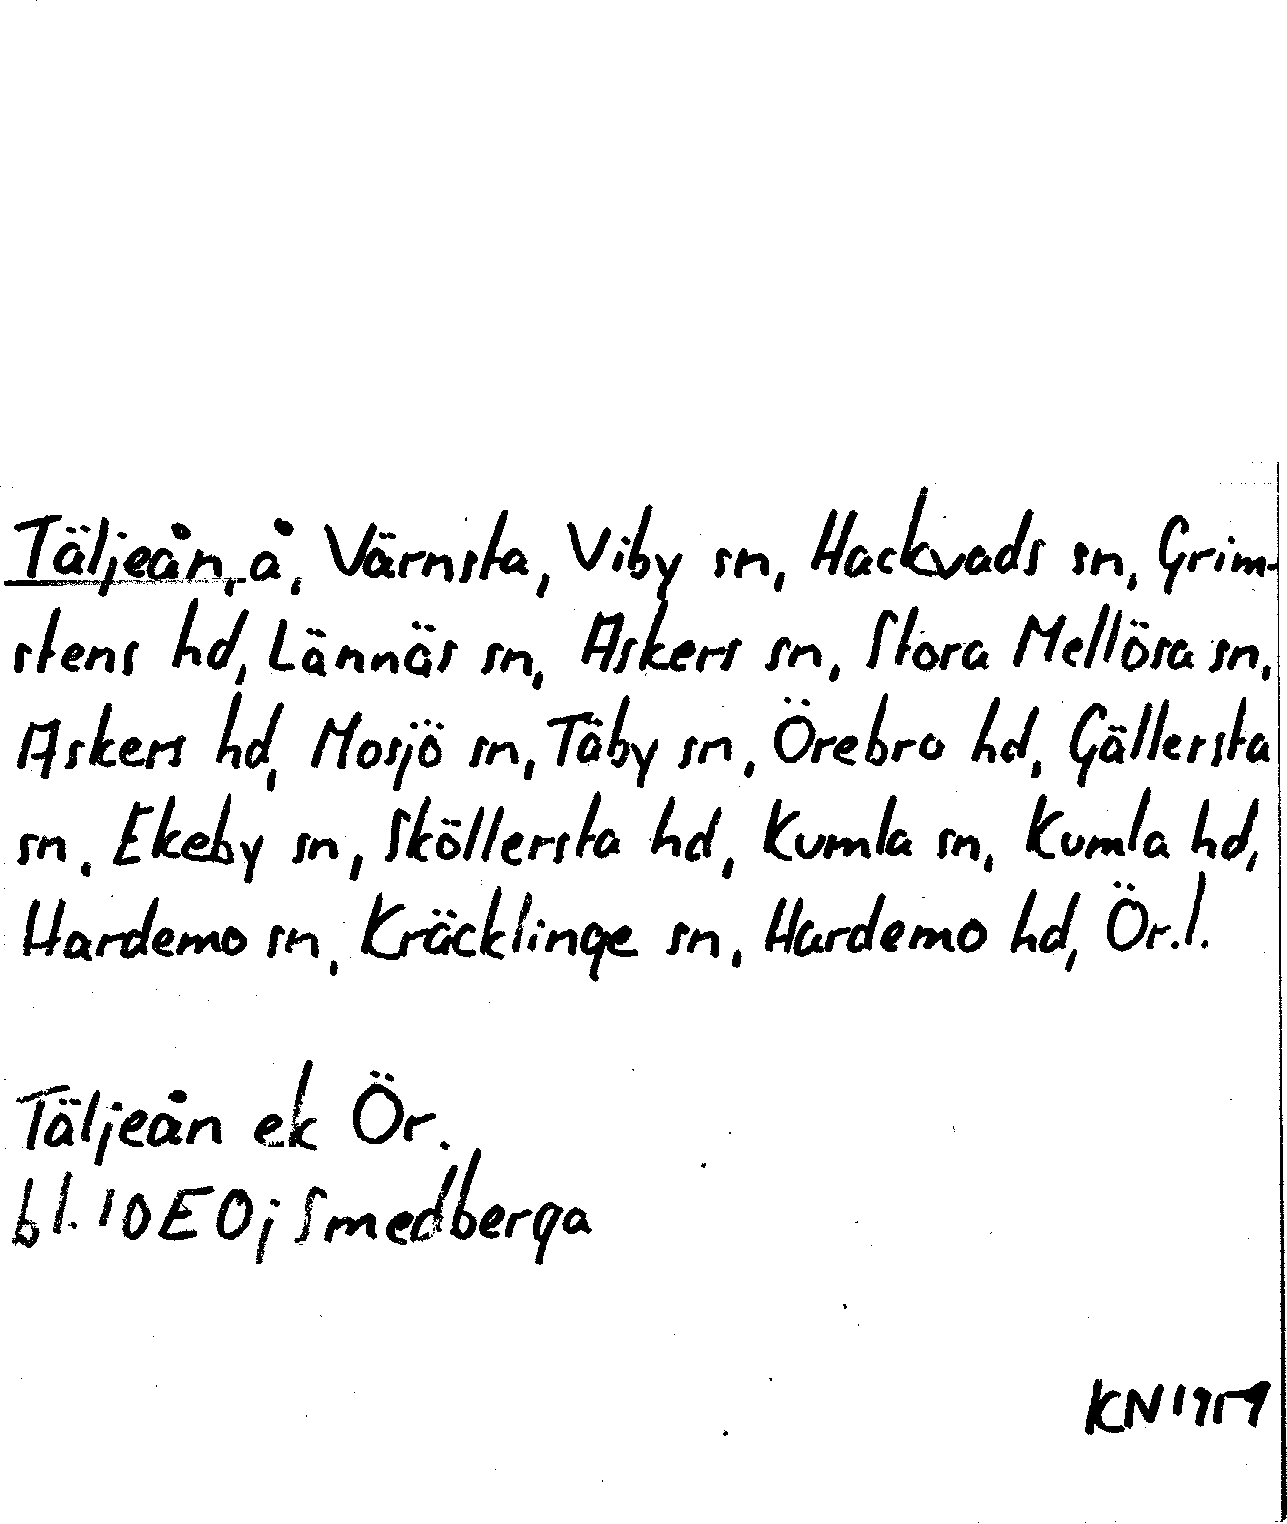 Täljeån, å, Värnsta, Viby sn, Hackvads sn, Grim-
stens hd, Lännäs sn, Askers sn, Stora Mellösa sn,
Askers hd, Mosjö sn, Täby sn, Örebro hd, Gällersta
sn, Ekeby sn, Sköllersta hd, Kumla sn, Kumla hd,
Hardemo sn, Kräcklinge sn, Hardemo hd, Ör.l.
Täljeån ek Ör.
bl. 10E0j Smedberga
KN1959